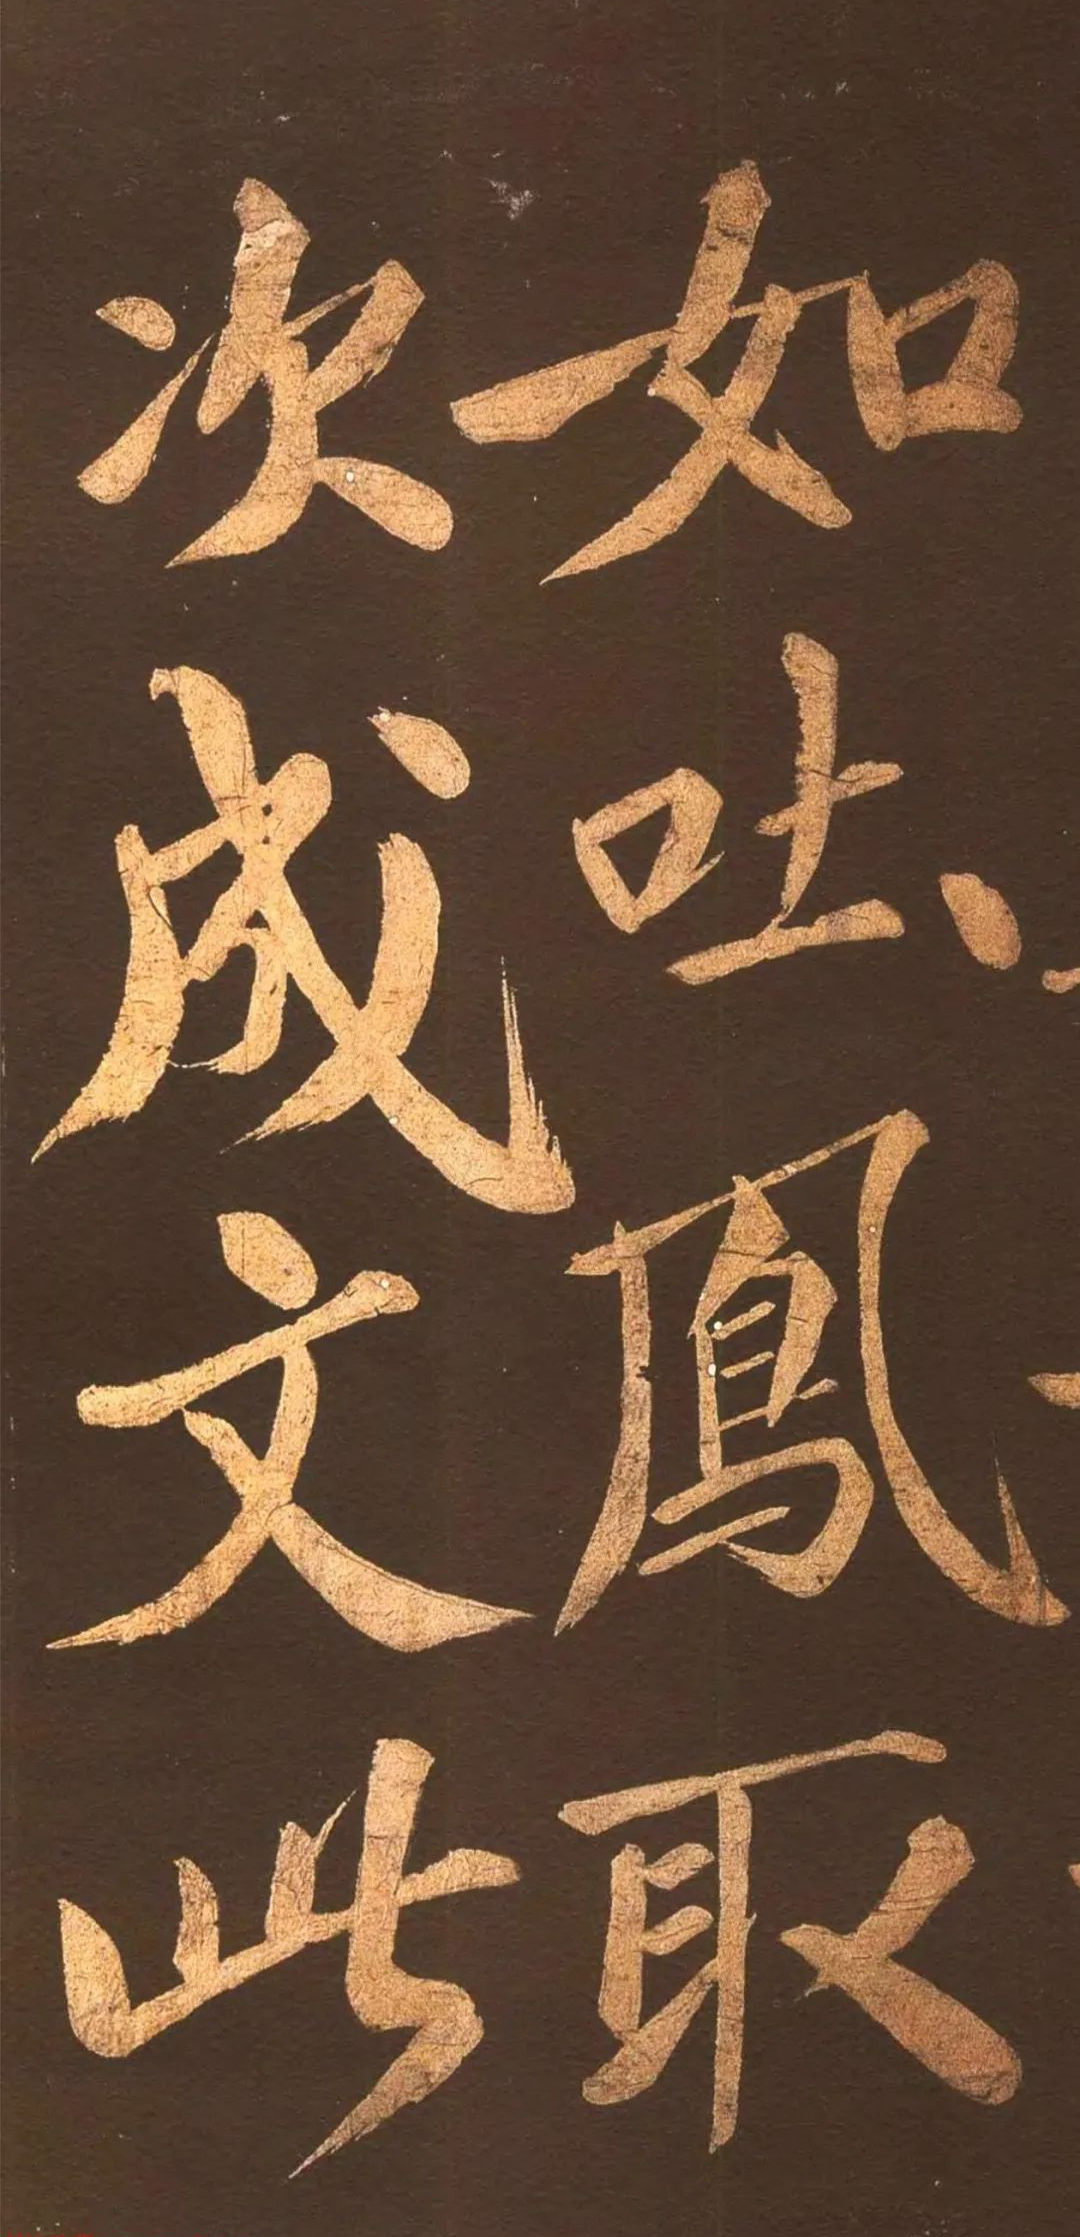 如吐鳳取
次成文此